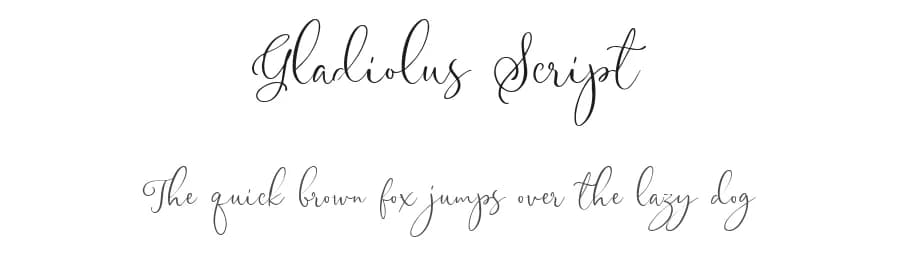 Gladiolus Script
The quick brown fox jumps over the lazy dog